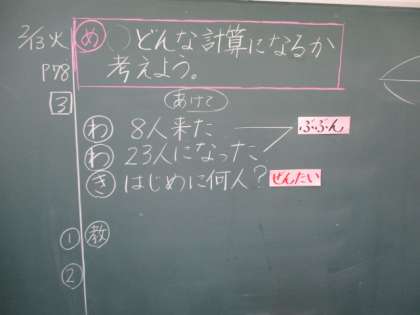 2/13火
め どんな計算になるか
考えよう。
P78
3
あけて
わ 8人来た
ぶぶん
わ 23人になった
き はじめに何人?
ぜんたい
① 教
②